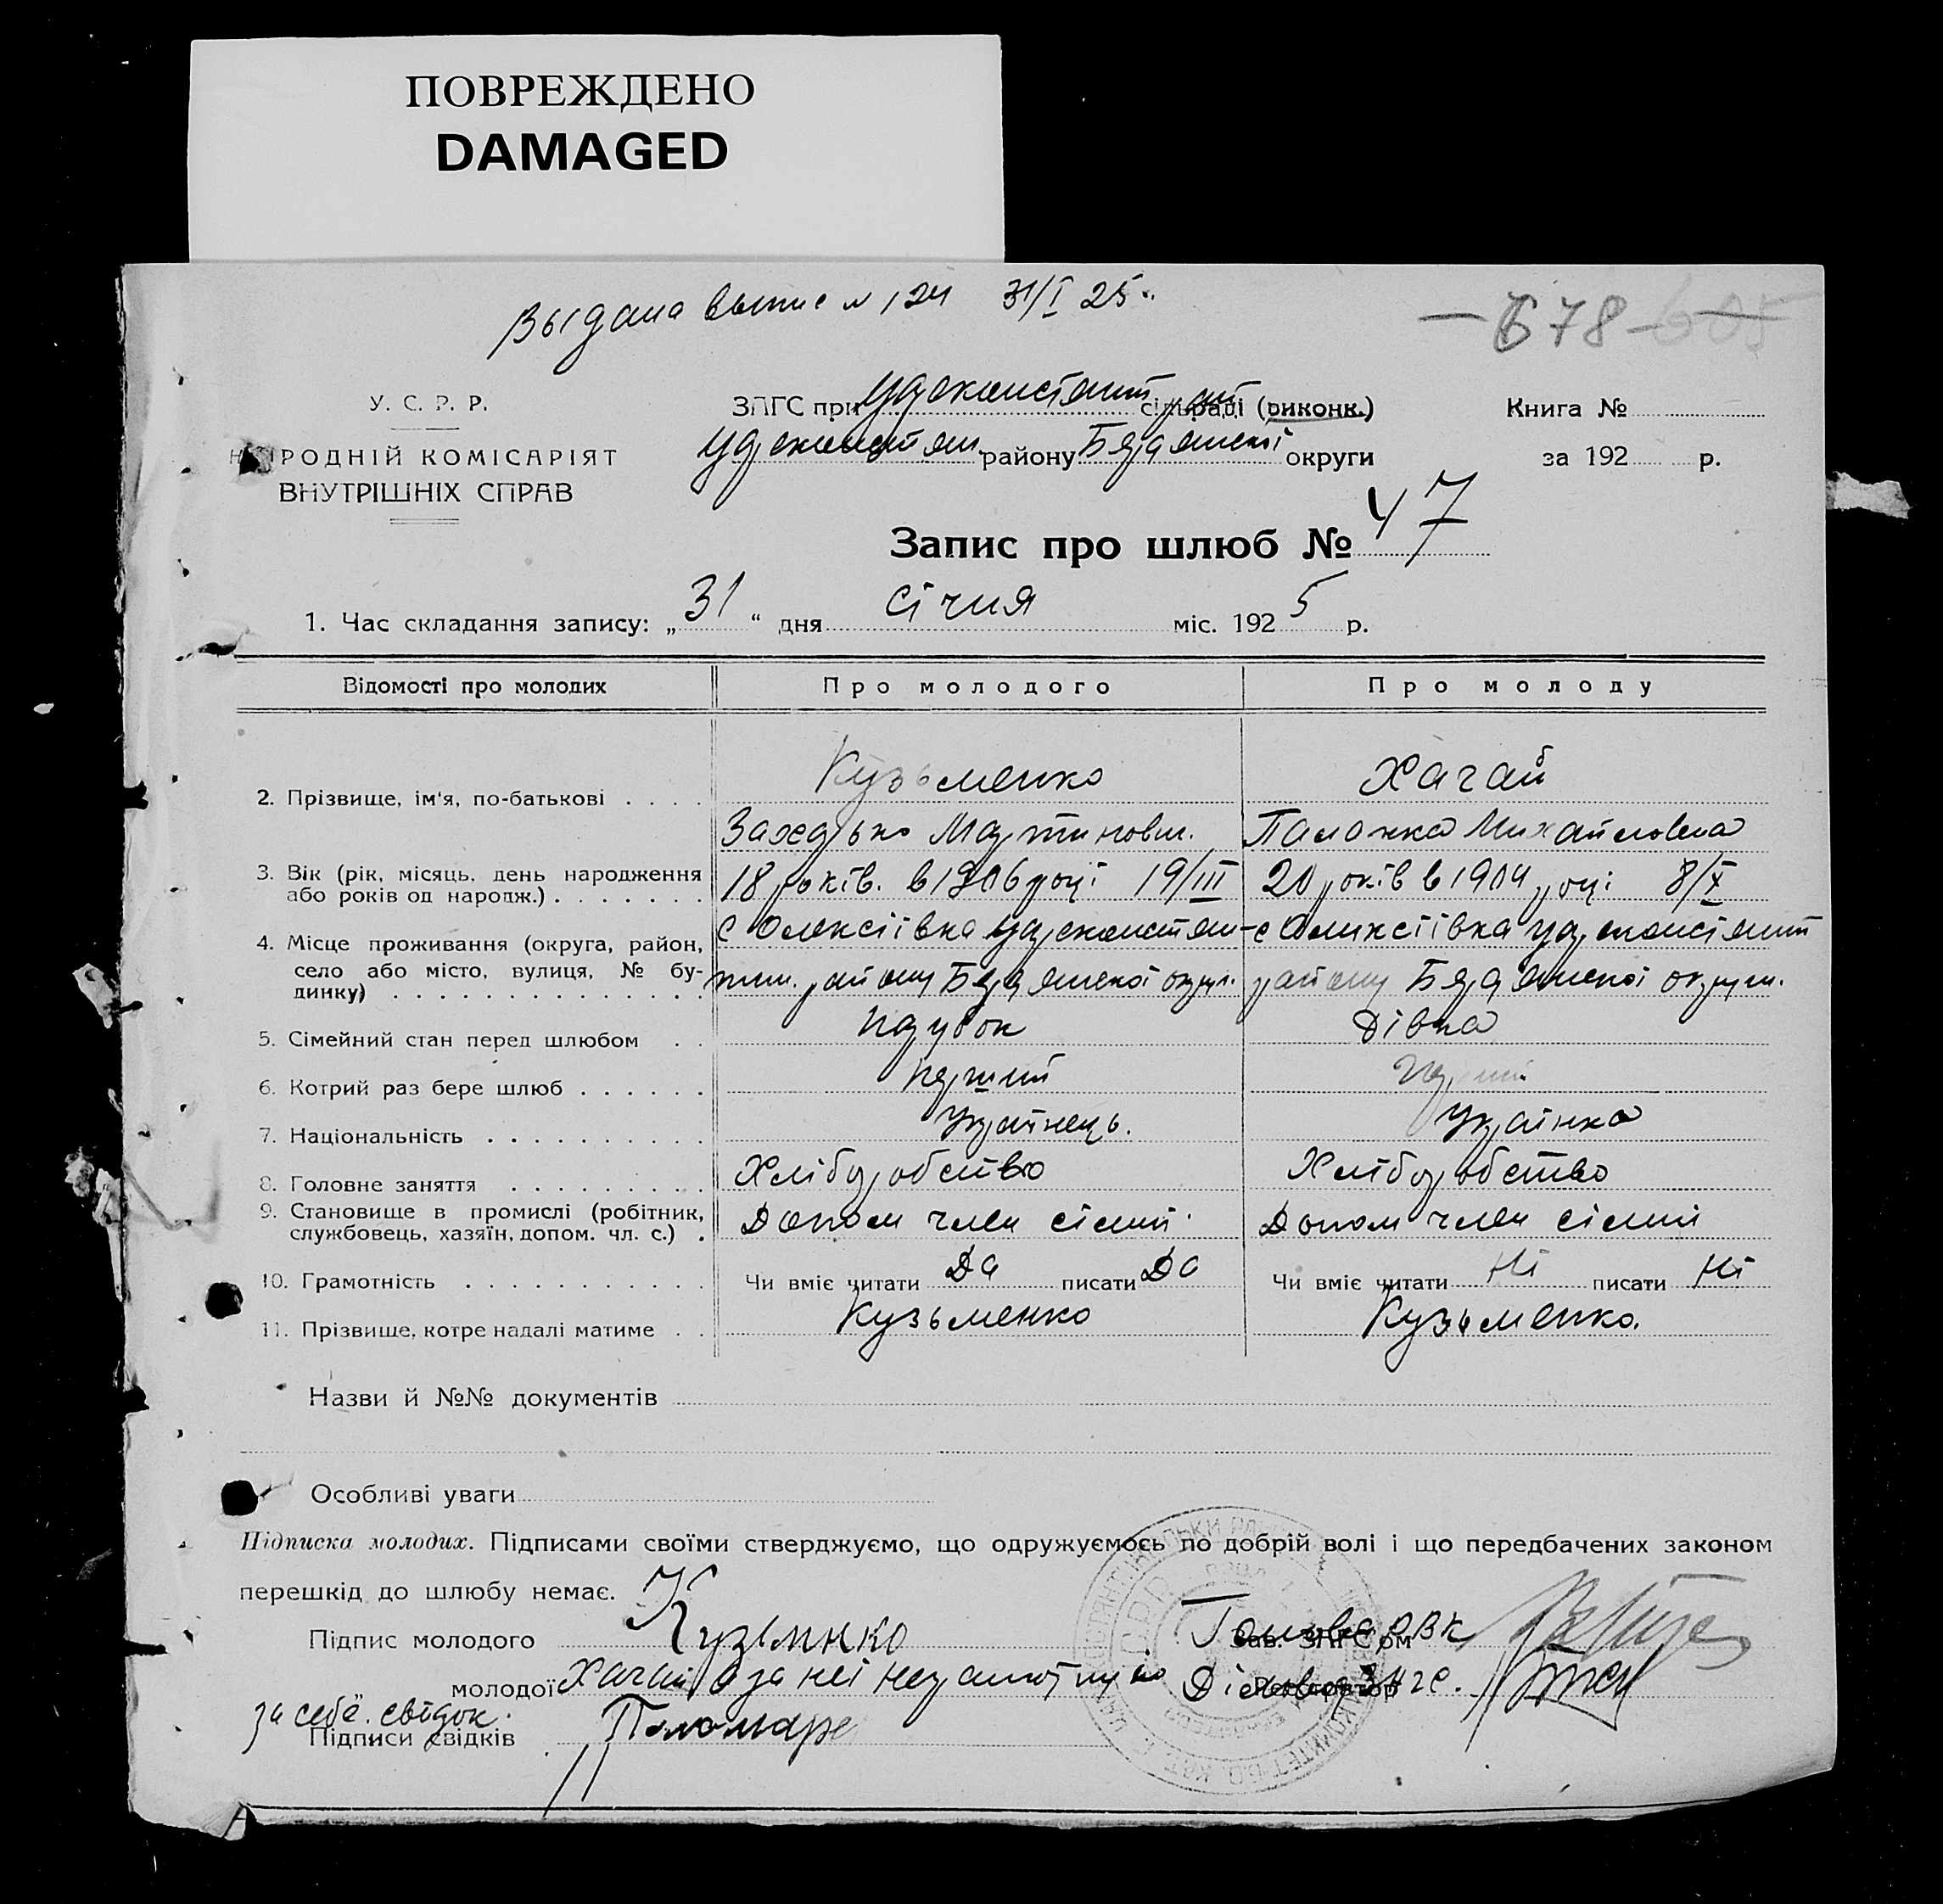 ПОВРЕЖДЕНО
DAMAGED
Выдана выпис № 124 31/I 25
678 605
У. С. Р. Р.
НАРОДНІЙ КОМІСАРІЯТ
ВНУТРІШНІХ СПРАВ
ЗАГС при Царекостянт сільраді (виконк.)
Царекостян. району Бердянської округи
Книга №
за 192 р.
Запис про шлюб № 47
1. Час складання запису: „ 31 “ дня січня міс. 192 5 р.
Відомості про молодих Про молодого Про молоду
2. Прізвище, ім'я, по-батькові Кузьменко Хагай
Мартинович. Михайловна
3. Вік (рік, місяць, день народження
або років од народж.) 18 років. в 1906 році 19/III 20 років в 1904 році 8/X
4. Місце проживання (округа, район,
село або місто, вулиця, № бу-
динку)
с Олексіївка Царекостян-
тин. району Бердянської округи.
с Оликсіївка Царекостянт
району Бердянської округи.
5. Сімейний стан перед шлюбом парубок Дівка
6. Котрий раз бере шлюб перший перший
7. Національність Українець. Українка
8. Головне заняття Хліборобство Хліборобство
9. Становище в промислі (робітник,
службовець, хазяїн, допом. чл. с.) Допом член сімии Допом член сімии
10. Грамотність Чи вміє читати Да писати Да Чи вміє читати Ні писати Ні
11. Прізвище, котре надалі матиме Кузьменко Кузьменко.
Назви й №№ документів
Особливі уваги
Підписка молодих. Підписами своїми стверджуємо, що одружуємось по добрій волі і що передбачених законом
перешкід до шлюбу немає.
Підпис молодого Кузьмнко Голова РВК
Зав. ЗАГС'ом
молодої Хагай а за неї неграмотную Діловод
Реєстратор
за себе. свідок.
Підписи свідків Пономаре